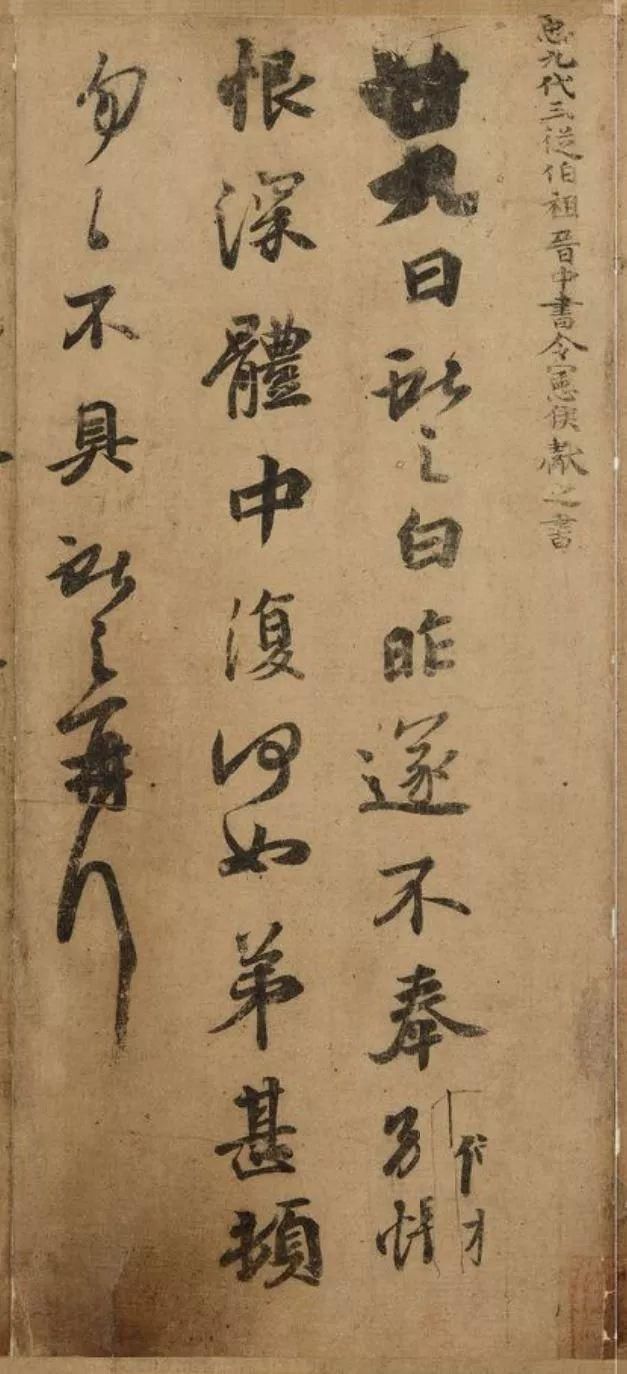 𢘑九代三從伯祖晉中書令憲侯獻之書
廿九日獻之白昨遂不奉別悵
恨深體中復何如弟甚頓
勿〻不具獻之再拜